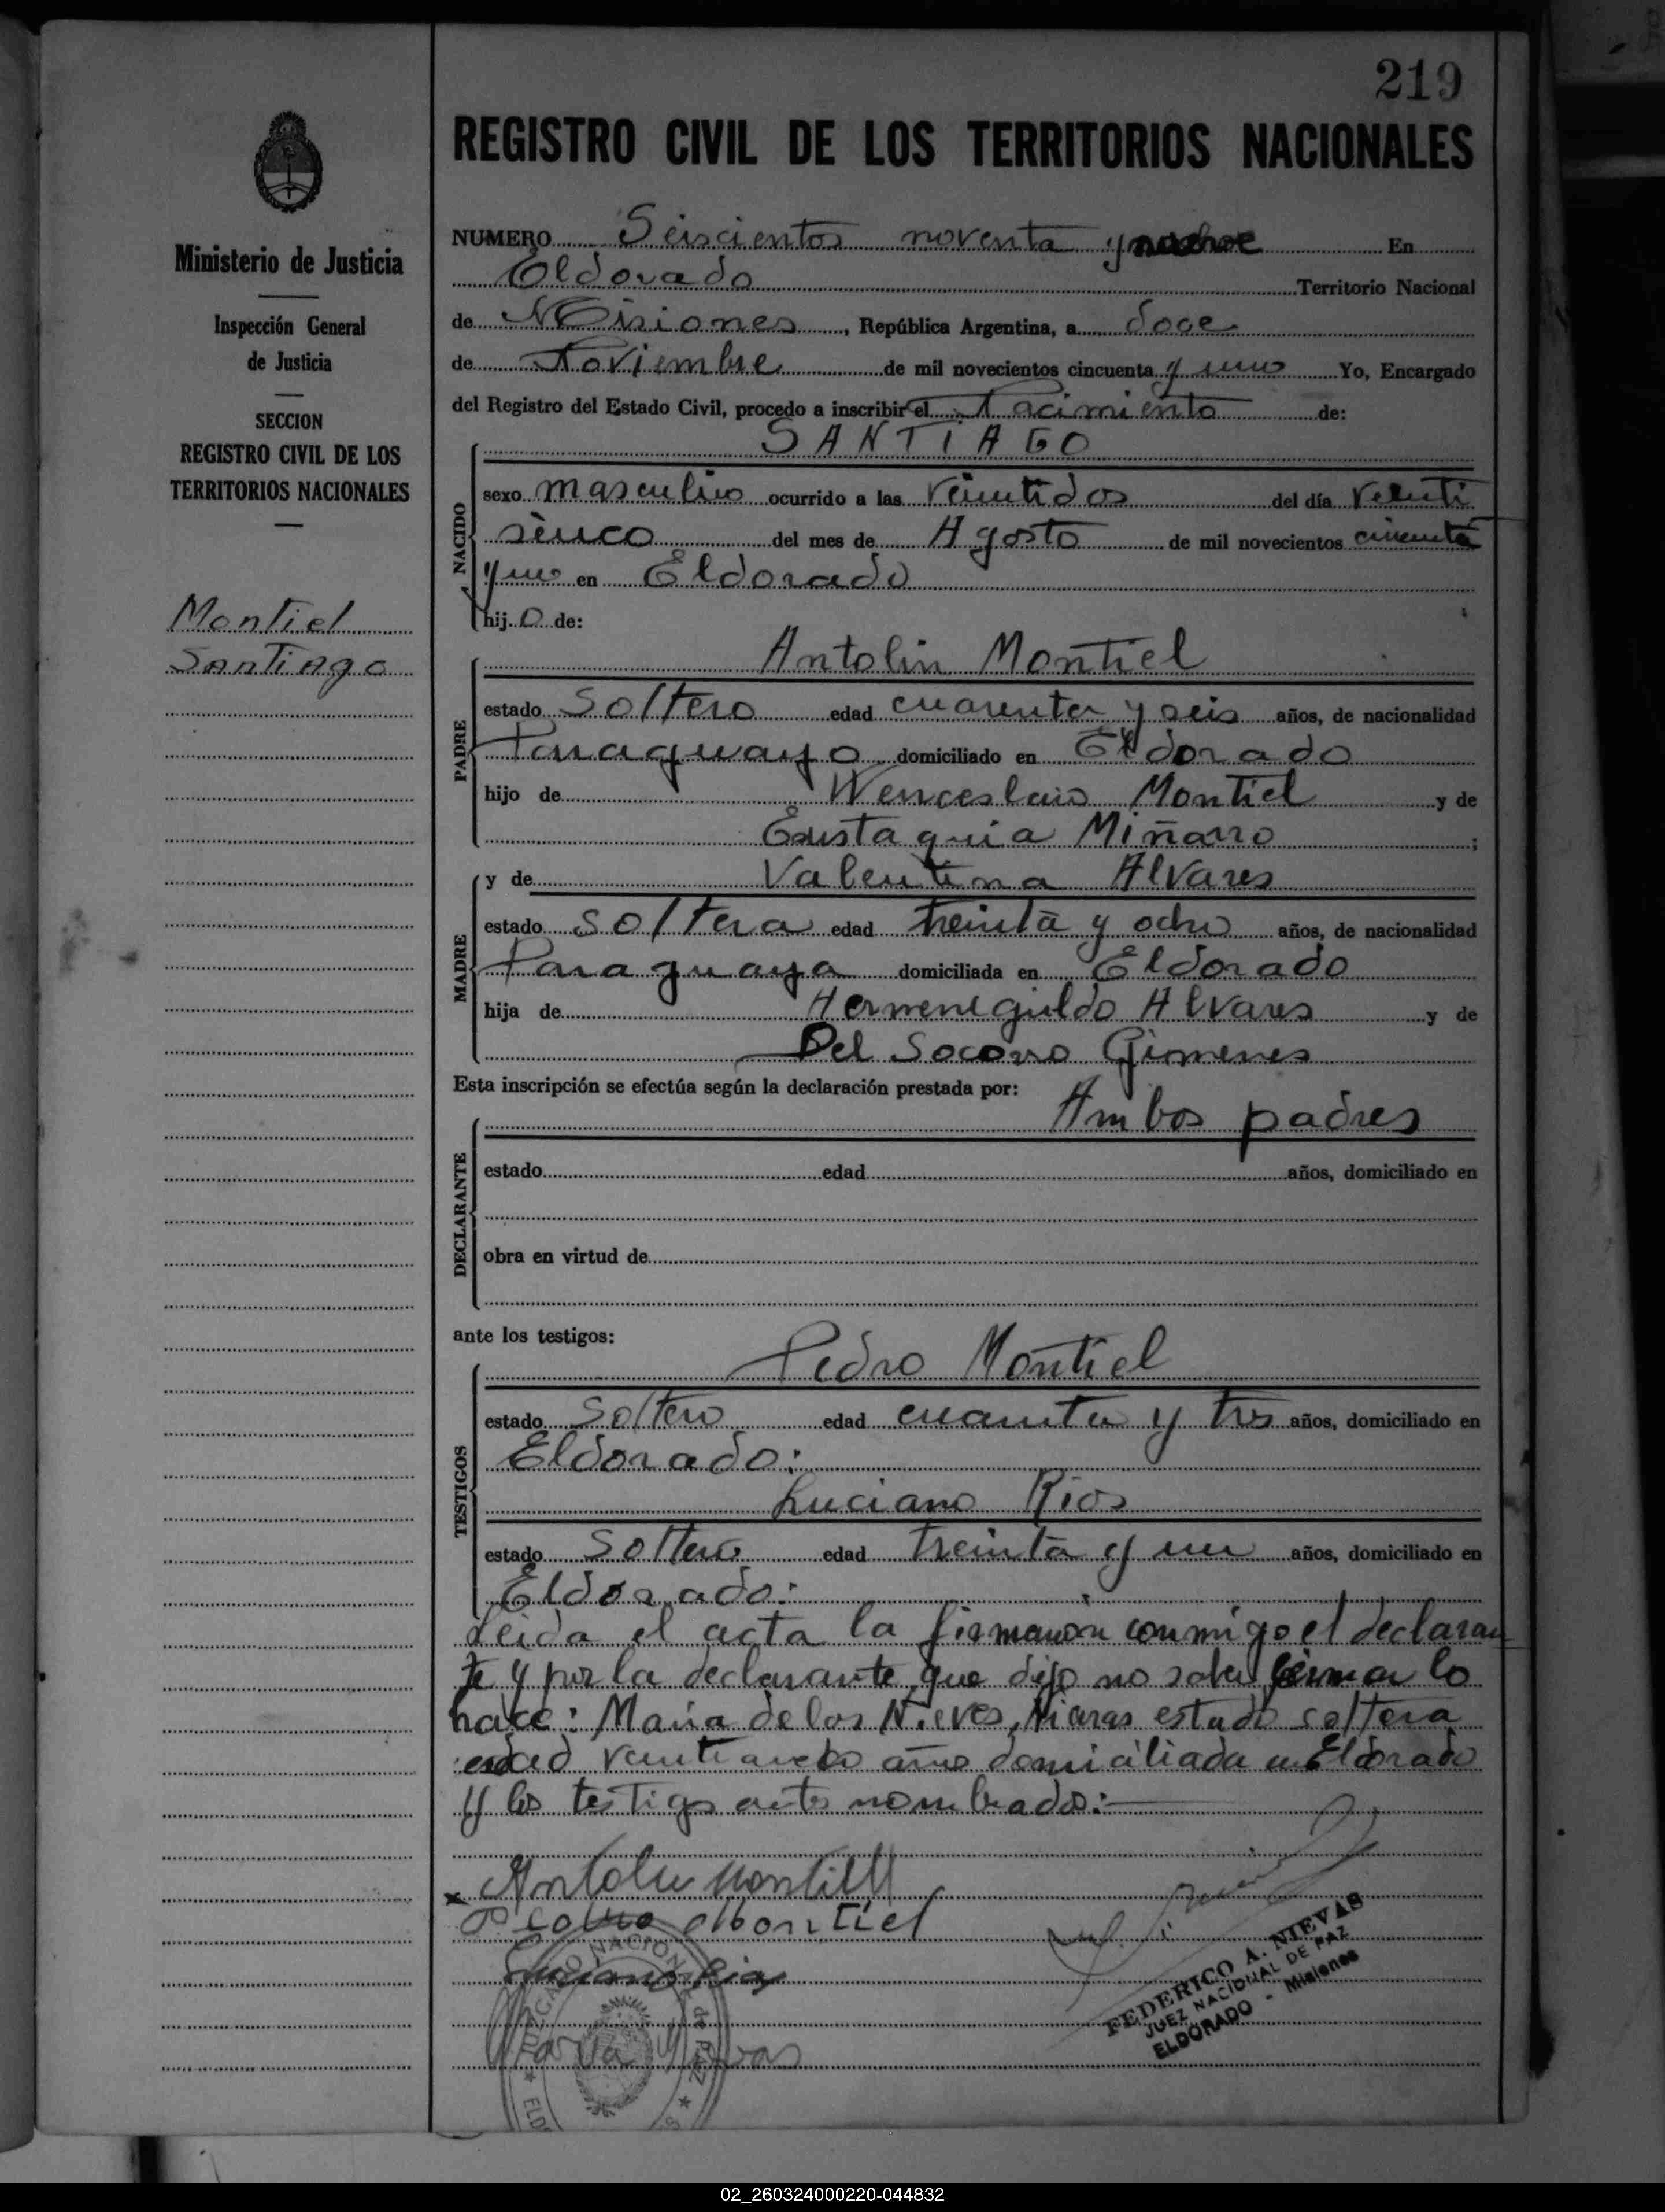 219
REGISTRO CIVIL DE LOS TERRITORIOS NACIONALES
Ministerio de Justicia
Inspección General
de Justicia
SECCION
REGISTRO CIVIL DE LOS
TERRITORIOS NACIONALES
Montiel
Santiago
NUMERO Seiscientos noventa y En
Eldorado Territorio Nacional
de Misiones, República Argentina, a doce
de Noviembre de mil novecientos cincuenta y uno Yo, Encargado
del Registro del Estado Civil, procedo a inscribir el Nacimiento de:
SANTIAGO
NACIDO
sexo masculino ocurrido a las veintidos del día veinti
sinco del mes de Agosto de mil novecientos cincuenta
y uno en Eldorado
hijo de:
PADRE
Antolin Montiel
estado soltero edad cuarenta y seis años, de nacionalidad
Paraguayo domiciliado en Eldorado
hijo de Wenceslao Montiel y de
Eustaquia Miñarro;
MADRE
y de Valentina Alvares
estado soltera edad treinta y ocho años, de nacionalidad
Paraguaya domiciliada en Eldorado
hija de Hermenegildo Alvares y de
Del Socorro Gimenes
Esta inscripción se efectúa según la declaración prestada por:
DECLARANTE
Ambos padres
estado edad años, domiciliado en
obra en virtud de
ante los testigos:
TESTIGOS
Pedro Montiel
estado soltero edad cuarenta y tres años, domiciliado en
Eldorado:
Luciano Rios
estado soltero edad treinta y un años, domiciliado en
Eldorado:
Leida el acta la firmaron conmigo el declaran
te y por la declarante, que dijo no saber firmar lo
hace: Maria de los Nieves, estado soltera
edad años domiciliada en Eldorado
y los testigos antes nombrados:
Antolin Montiell
Pedro Montiel
Luciano Rios
JUZGADO NACIONAL de PAZ
FEDERICO A. NIEVAS
JUEZ NACIONAL DE PAZ
ELDORADO - Misiones
02_260324000220-044832